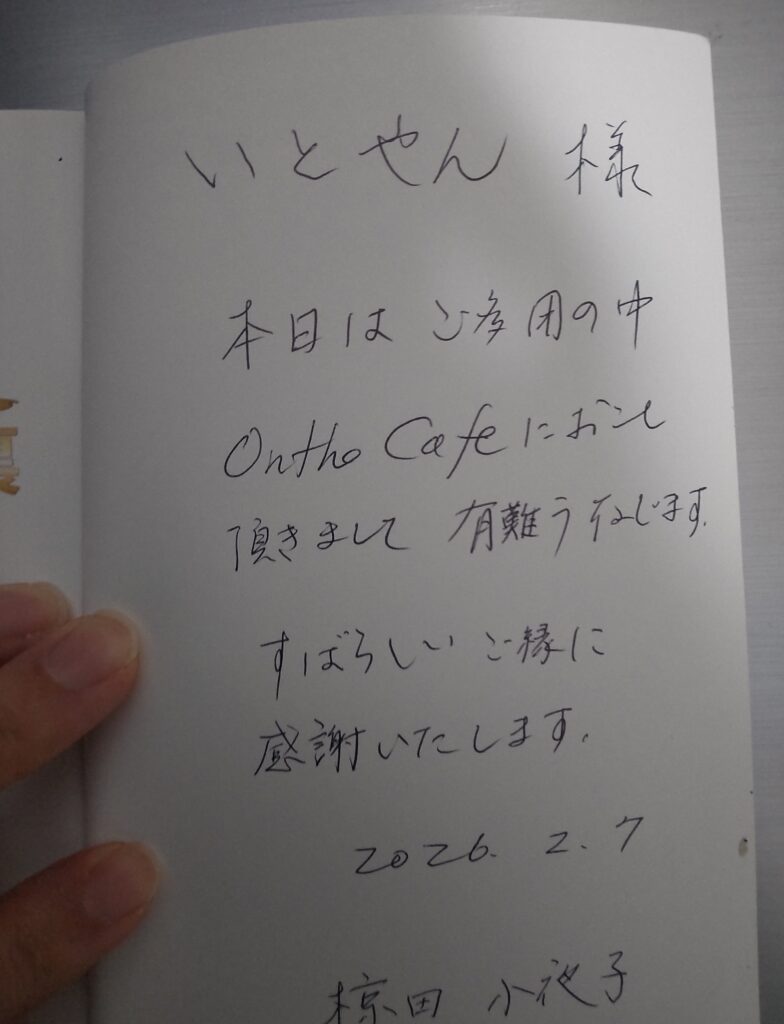 いとやん 様
本日は ご多用の中
Ontho Cafe におこし
頂きまして 有難うございます.
すばらしい ご縁に
感謝いたします.
2026. 2. 7
椋田 小夜子